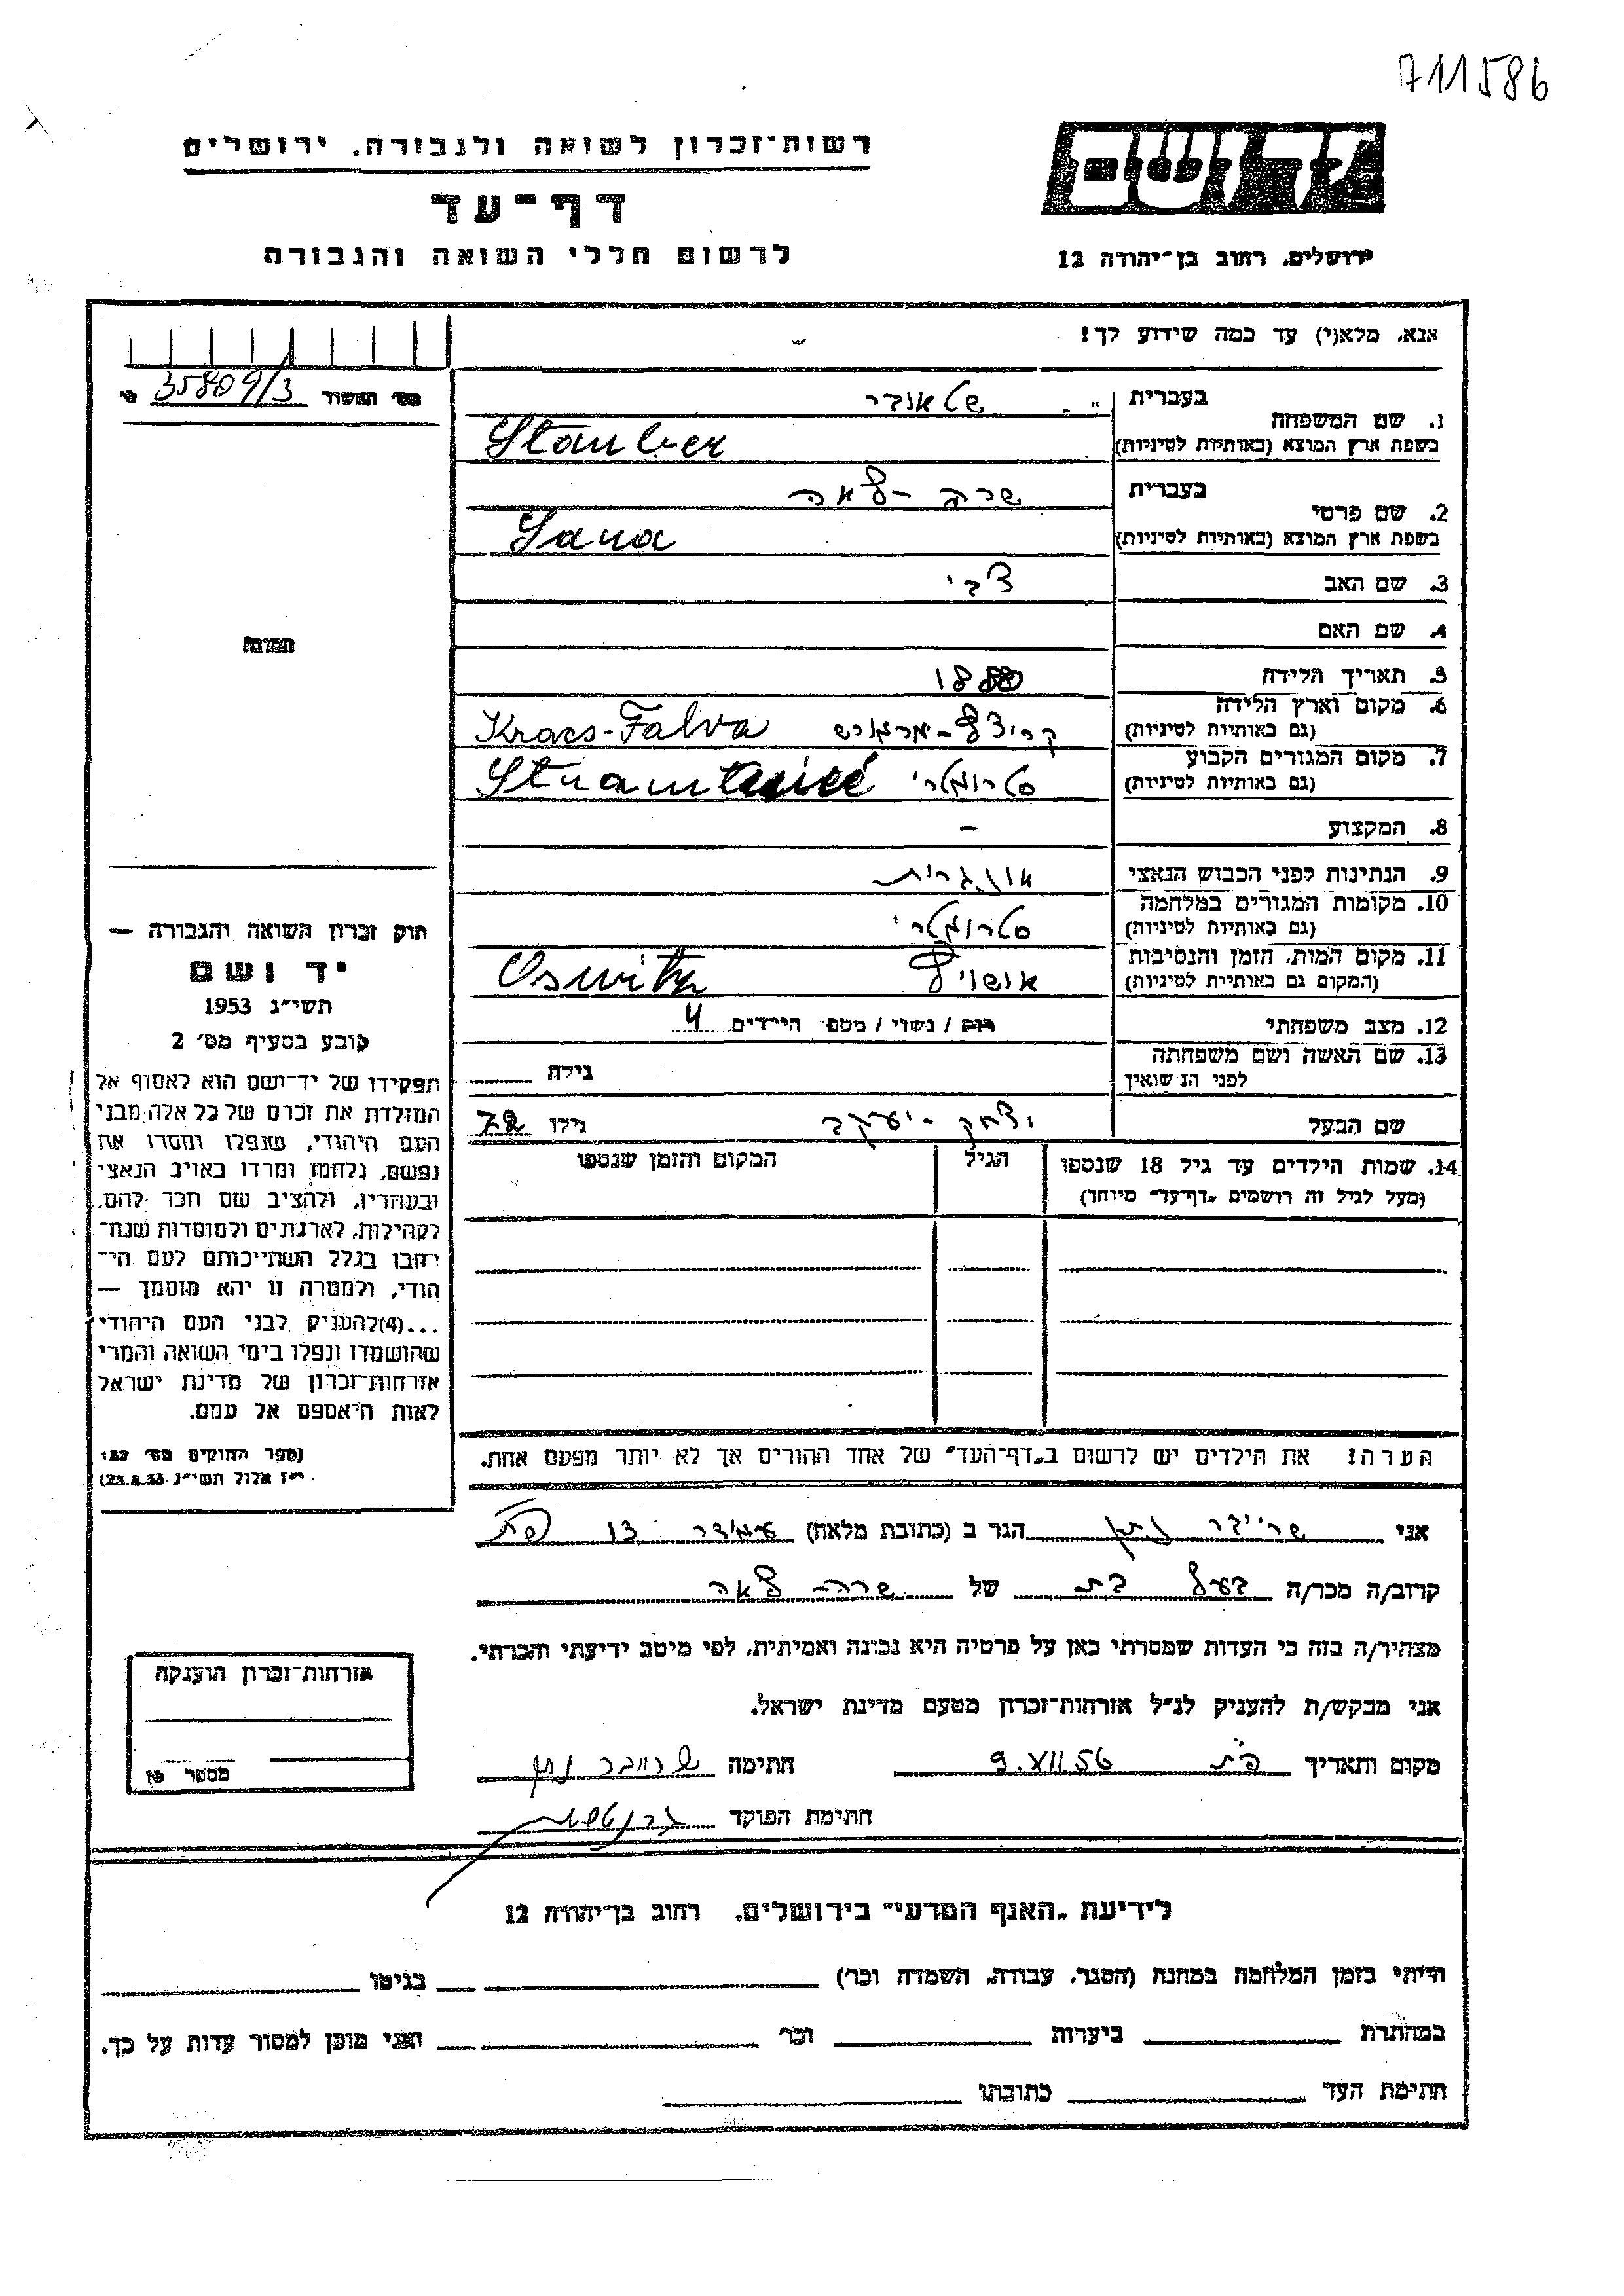 711586
רשות־זכרון לשואה ולגבורה. ירושלים
דף־עד
לרשום חללי השואה והגבורה
יד ושם
ירושלים. רחוב בן־יהודה 12
אנא, מלא(י) עד כמה שידוע לך!
מס׳ האשור 35809/3
1. שם המשפחה
בעברית
בשפת ארץ המוצא (באותיות לטיניות)
Stauber
2. שם פרטי
בעברית שרה - לאה
בשפת ארץ המוצא (באותיות לטיניות)
Sara
3. שם האב צבי
4. שם האם
5. תאריך הלידה 1888
6. מקום וארץ הלידה
(גם באותיות לטיניות) Kracs-Falva
7. מקום המגורים הקבוע
(גם באותיות לטיניות)
8. המקצוע –
9. הנתינות לפני הכבוש הנאצי אונגרית
10. מקומות המגורים במלחמה
(גם באותיות לטיניות)
11. מקום המות, הזמן והנסיבות
(המקום גם באותיות לטיניות) אושויץ Oswitz
12. מצב משפחתי רוק / נשוי / מספ׳ הילדים 4
13. שם האשה ושם משפחתה
לפני הנשואין גילה
שם הבעל יצחק - יעקב גילו 72
14. שמות הילדים עד גיל 18 שנספו
(מעל לגיל זה רושמים „דף־עד” מיוחד)
הגיל
המקום והזמן שנספו
התמונה
חוק זכרון השואה והגבורה —
יד ושם
תשי״ג 1953
קובע בסעיף מס׳ 2
תפקידו של יד־ושם הוא לאסוף אל
המולדת את זכרם של כל אלה מבני
העם היהודי, שנפלו ומסרו את
נפשם, נלחמו ומרדו באויב הנאצי
ובעוזריו, ולהציב שם וזכר להם,
לקהילות, לארגונים ולמוסדות שנח־
רבו בגלל השתייכותם לעם הי־
הודי, ולמטרה זו יהא מוסמך —
...(4)להעניק לבני העם היהודי
שהושמדו ונפלו בימי השואה והמרי
אזרחות־זכרון של מדינת ישראל
לאות היאספם אל עמם.
(ספר החוקים מס׳ 132
י״ז אלול תשי״ג 28.8.53)
הערה: את הילדים יש לרשום ב„דף־העד” של אחד ההורים אך לא יותר מפעם אחת.
אני שרייבר נתן הגר ב (כתובת מלאה) עמידר
קרוב/ה מכר/ה בעל בת של שרה - לאה
מצהיר/ה בזה כי העדות שמסרתי כאן על פרטיה היא נכונה ואמיתית, לפי מיטב ידיעתי והכרתי.
אני מבקש/ת להעניק לנ״ל אזרחות־זכרון מטעם מדינת ישראל.
מקום ותאריך פ״ת 9.XII.56 חתימה שרייבר נתן
חתימת הפוקד
אזרחות־זכרון הוענקה
מספר
לידיעת „האגף המדעי” בירושלים. רחוב בן־יהודה 12
הייתי בזמן המלחמה במחנה (הסגר, עבודה, השמדה וכו׳) בגיטו
במחתרת ביערות וכו׳ ואני מוכן למסור עדות על כך.
חתימת העד כתובתו